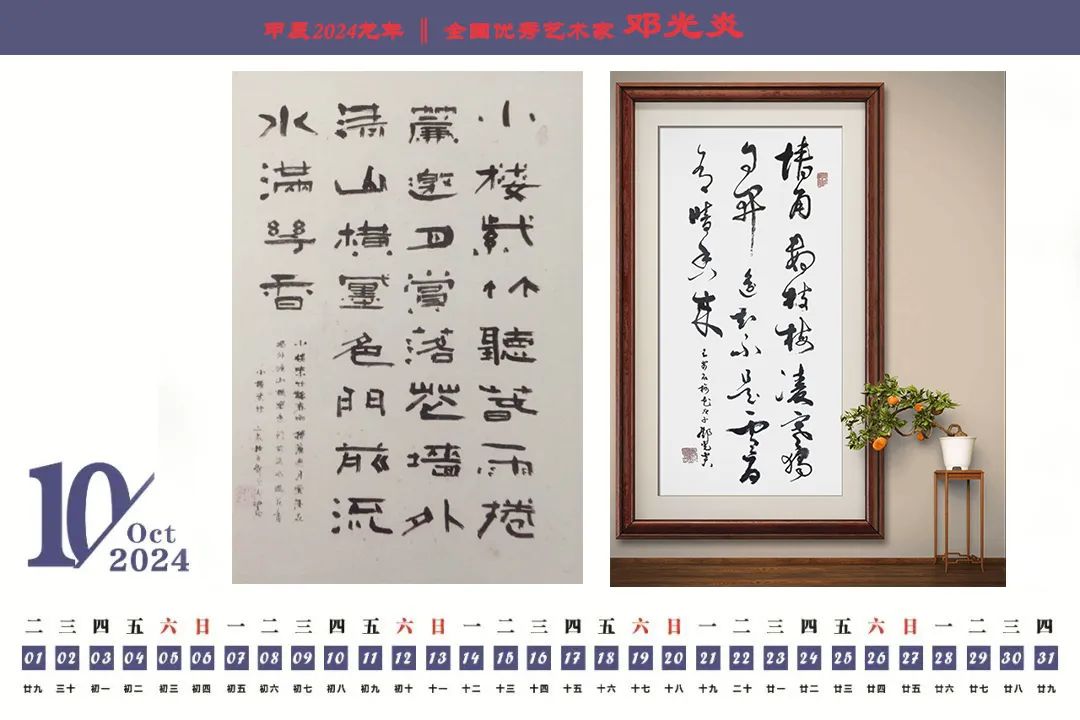 甲辰2024龙年 ‖ 全国优秀艺术家 邓光炎
小樓紫竹聽春雨捲
簾邀月賞落花墻外
山橫色門前流
水滿香
墻角數枝梅凌寒獨
自開遙知不是雪為
有暗香來
鄧光炎
10
Oct
2024
二 三 四 五 六 日 一 二 三 四 五 六 日 一 二 三 四 五 六 日 一 二 三 四 五 六 日 一 二 三 四
01 02 03 04 05 06 07 08 09 10 11 12 13 14 15 16 17 18 19 20 21 22 23 24 25 26 27 28 29 30 31
廿九 三十 初一 初二 初三 初四 初五 初六 初七 初八 初九 初十 十一 十二 十三 十四 十五 十六 十七 十八 十九 二十 廿一 廿二 廿三 廿四 廿五 廿六 廿七 廿八 廿九